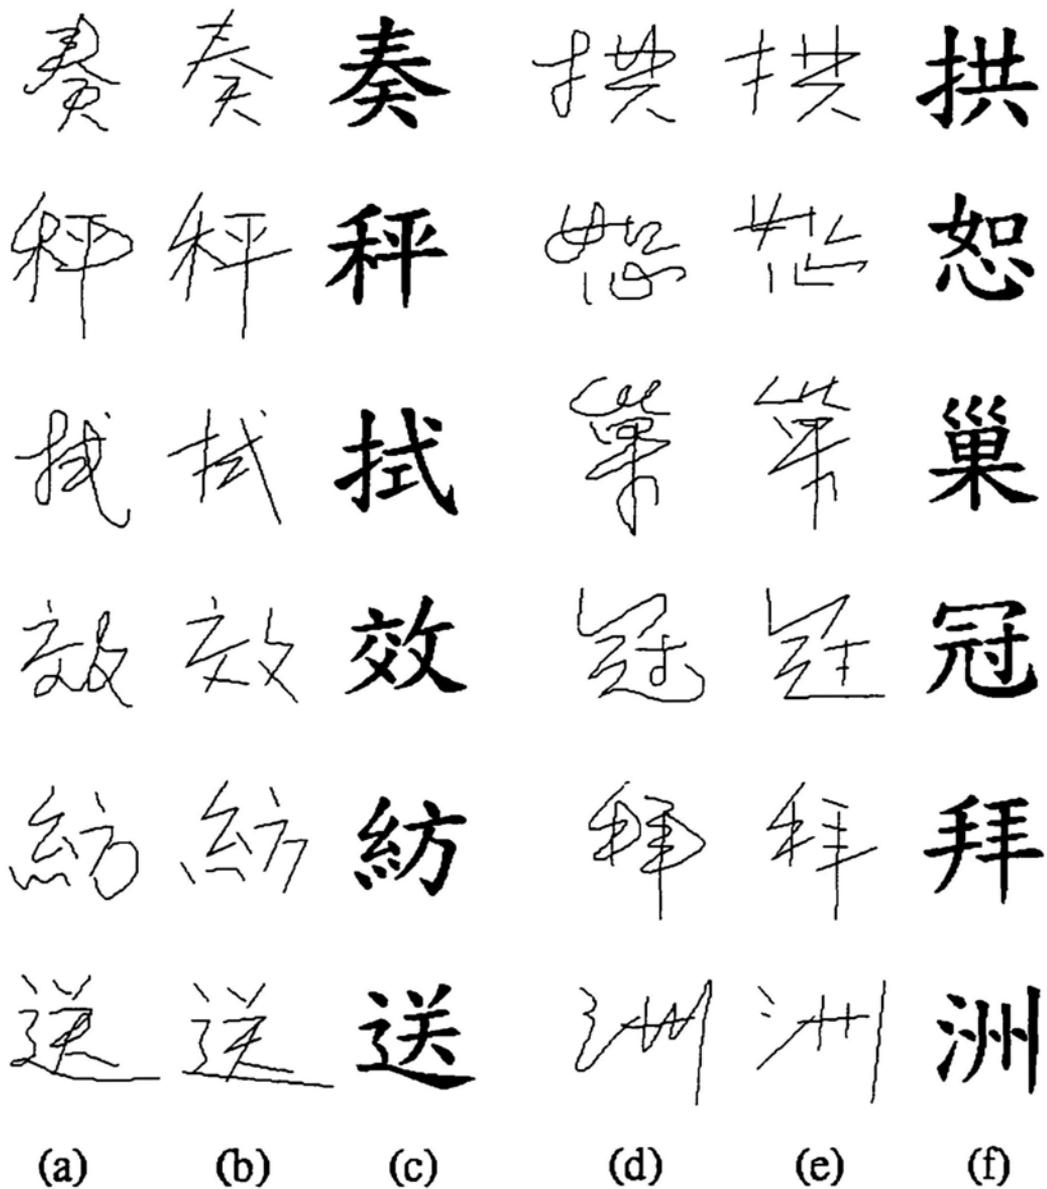 奏 奏 奏 拱 拱 拱
秤 秤 秤 恕 恕 恕
拭 拭 拭 巢 巢 巢
效 效 效 冠 冠 冠
紡 紡 紡 拜 拜 拜
送 送 送 洲 洲 洲
(a) (b) (c) (d) (e) (f)